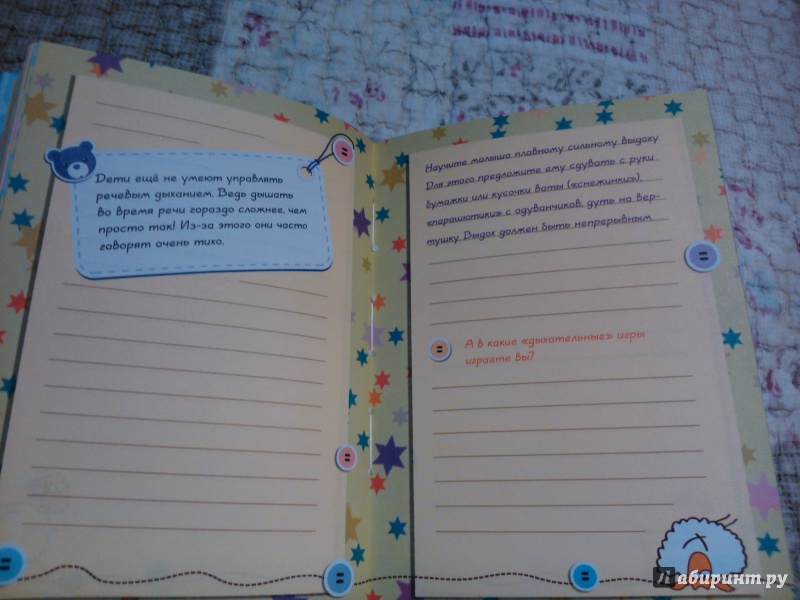 Дети ещё не умеют управлять
речевым дыханием. Ведь дышать
во время речи гораздо сложнее, чем
просто так! Из-за этого они часто
говорят очень тихо.
Научите малыша плавному сильному выдоху.
Для этого предложите ему сдувать с руки
бумажки или кусочки ваты («снежинки»),
«парашютики» с одуванчиков, дуть на вер-
тушку. Выдох должен быть непрерывным.
А в какие «дыхательные» игры
играете вы?
Лабиринт.ру